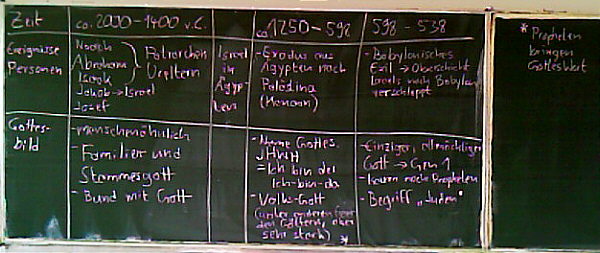 Zeit
ca. 2000-1400 v.C.
ca. 1250-598
598-538
Ereignisse
Personen
Noach
Abraham
Isaak
Jakob → Israel
Josef
Patriarchen
Ureltern
Israel
in
Ägyp-
ten
- Exodus aus
Ägypten nach
Palästina
(Kanaan)
- Babylonisches
Exil → Oberschicht
Israels nach Babylon
verschleppt
Gottes-
bild
- menschenähnlich
- Familien und
Stammesgott
- Bund mit Gott
- Name Gottes
JHWH
= Ich bin der
Ich-bin-da
- Volk-Gott
(unter anderen
den Göttern, aber
sehr stark) *
- Einziger, allmächtiger
Gott → Gen 1
- Propheten
- Begriff „Juden"
* Propheten
bringen
Gottes Wort